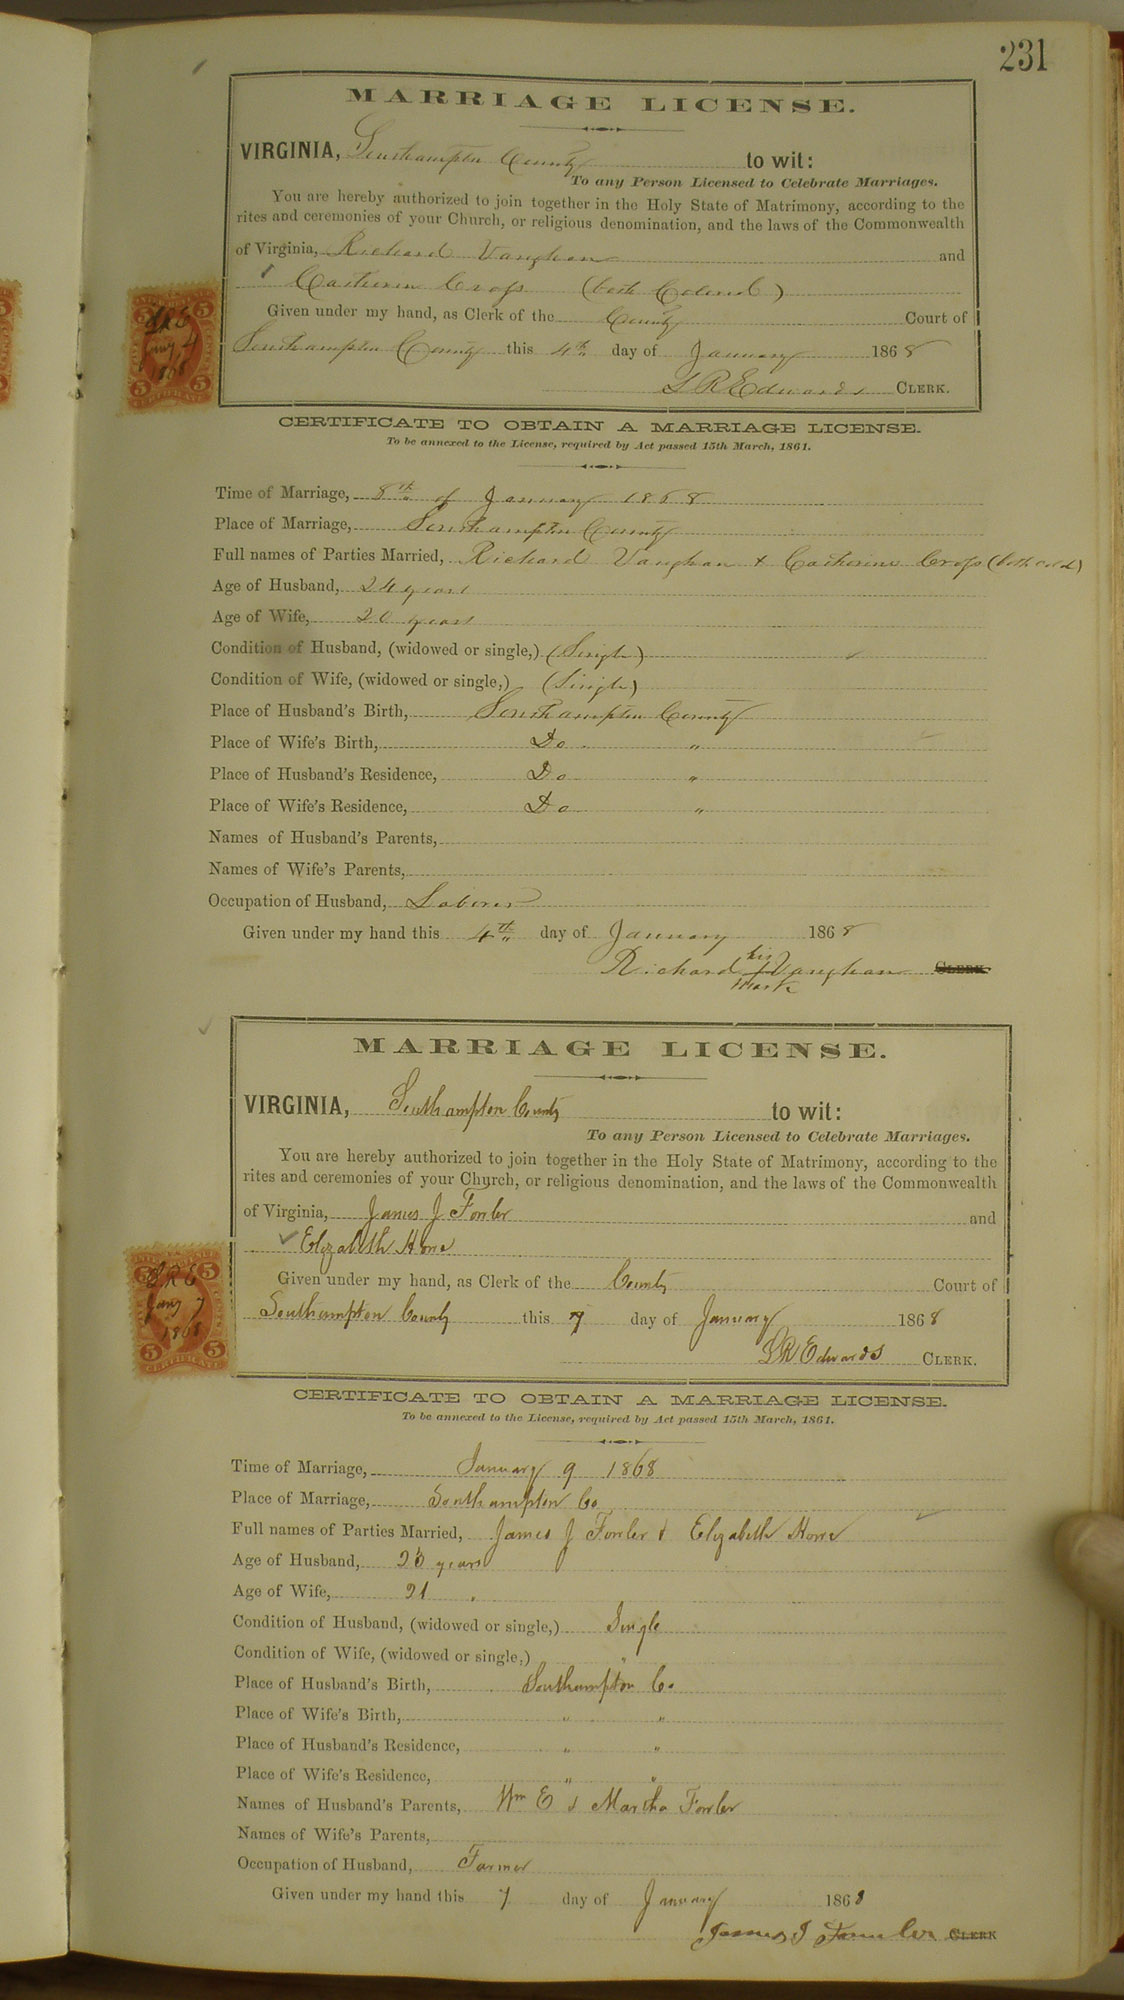 231
MARRIAGE LICENSE.
VIRGINIA, Southampton County to wit:
To any Person Licensed to Celebrate Marriages.
You are hereby authorized to join together in the Holy State of Matrimony, according to the
rites and ceremonies of your Church, or religious denomination, and the laws of the Commonwealth
of Virginia, Richard Vaughan and
Catherine Cross (both Colored)
Given under my hand, as Clerk of the County Court of
Southampton County this 4th day of January 1868
L R Edwards CLERK.
LRE
Jany 4
1868
CERTIFICATE TO OBTAIN A MARRIAGE LICENSE.
To be annexed to the License, required by Act passed 15th March, 1861.
Time of Marriage, 8th of January 1868
Place of Marriage, Southampton County
Full names of Parties Married, Richard Vaughan & Catherine Cross (both cold)
Age of Husband, 24 years
Age of Wife, 20 years
Condition of Husband, (widowed or single,) (Single)
Condition of Wife, (widowed or single,) (Single)
Place of Husband's Birth, Southampton County
Place of Wife's Birth, Do "
Place of Husband's Residence, Do "
Place of Wife's Residence, Do "
Names of Husband's Parents,
Names of Wife's Parents,
Occupation of Husband, Laborer
Given under my hand this 4th day of January 1868
his
Richard + Vaughan CLERK
mark
MARRIAGE LICENSE.
VIRGINIA, Southampton County to wit:
To any Person Licensed to Celebrate Marriages.
You are hereby authorized to join together in the Holy State of Matrimony, according to the
rites and ceremonies of your Church, or religious denomination, and the laws of the Commonwealth
of Virginia, James J Fowler and
Elizabeth
Given under my hand, as Clerk of the County Court of
Southampton County this 7 day of January 1868
LR Edwards CLERK.
LRE
Jany 7
1868
CERTIFICATE TO OBTAIN A MARRIAGE LICENSE.
To be annexed to the License, required by Act passed 15th March, 1861.
Time of Marriage, January 9 1868
Place of Marriage, Southampton Co
Full names of Parties Married, James J Fowler & Elizabeth
Age of Husband, 23 years
Age of Wife, 21 "
Condition of Husband, (widowed or single,) Single
Condition of Wife, (widowed or single,) "
Place of Husband's Birth, Southampton Co
Place of Wife's Birth, " "
Place of Husband's Residence, " "
Place of Wife's Residence, " "
Names of Husband's Parents, Wm E & Martha Fowler
Names of Wife's Parents,
Occupation of Husband, Farmer
Given under my hand this 7 day of January 1868
James J Fowler CLERK